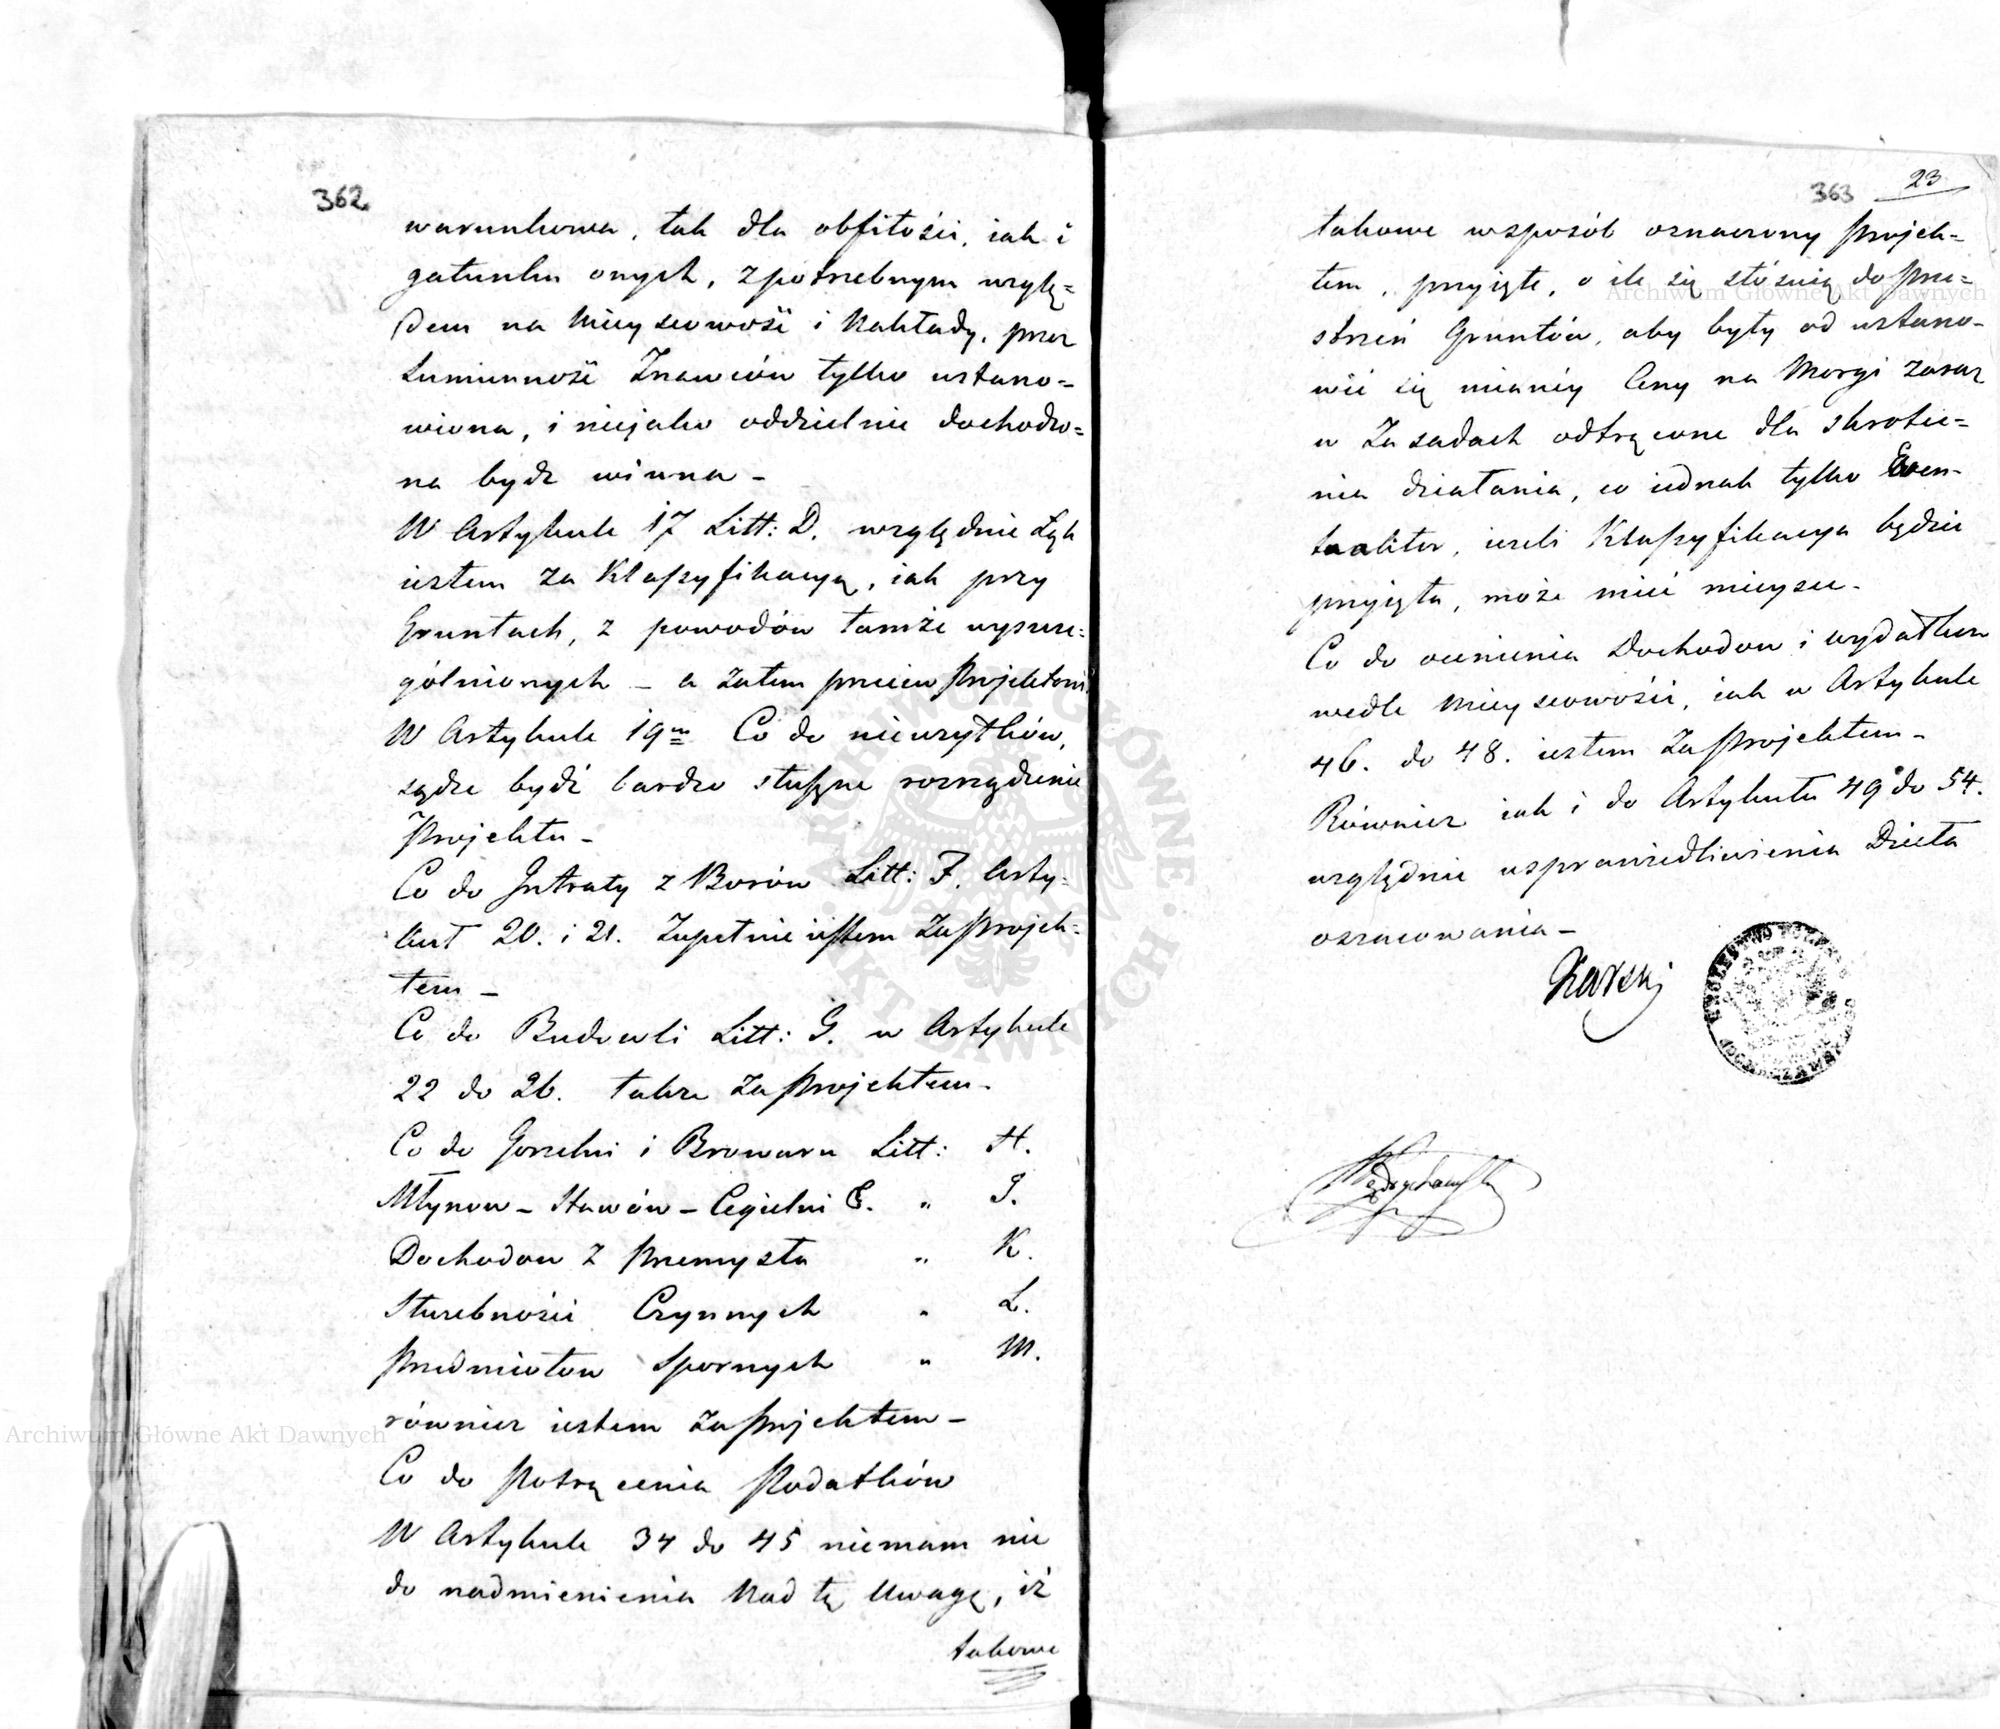 362.
warunkowa, tak dla obfitości, iak i
gatunku onych, z potrzebnym wzglę=
dem na Mieyscowość i Nakłady, przez
Sumienność Znawców tylko ustano=
wiona, i niejako oddzielnie dochodzo=
na bydz winna –
W Artykule 17 Litt: D. względnie Łąk
iestem za Klassyfikacyą, iak przy
Gruntach, z powodów tamże wyszcze=
gólnionych – a zatem przeciw Projektowi
W Artykule 19m Co do nieużytków,
sądze bydź bardzo słuszne rozrządzenie
Projektu –
Co do Intraty z Borów Litt: F. Arty=
kuł 20. i 21. Zupełnie iestem za Projek=
tem –
Co do Budowli Litt: G. w Artykule
22 do 26. takze za Projektem –
Co do Gorzelni i Browaru Litt: H.
Młynow – Stawów – Cegielni " I.
Dochodow z Przemysłu " K.
Służebności Czynnych " L.
Przedmiotow Spornych " M.
równiez iestem za Projektem –
Co do Potrącenia Podatków
W Artykule 34 do 45 niemam nic
do nadmienienia Nad tę Uwagę, iż
takowe
363 23
takowe wsposób oznaczony Projek=
tem, przyięte, o ile się stósuią do Prze=
strzeń Gruntów, aby były od ustano-
wić się mianéy Ceny na Morgi zaraz
w Zasadach odtrącone dla skróce=
nia działania, co iednak tylko Even-
tualiter, ieżeli Klassyfikacya będzie
przyięta, może mieć mieysce –
Co do ocenienia Dochodow i wydatkow
wedle Mieyscowości, iak w Artykule
46. do 48. iestem za Projektem –
Równiez iak i do Artykułu 49 do 54.
względnie usprawiedliwienia Dzieła
oszacowania –
Karski
Archiwum Główne Akt Dawnych
Archiwum Główne Akt Dawnych
ARCHIWUM GŁÓWNE AKT DAWNYCH